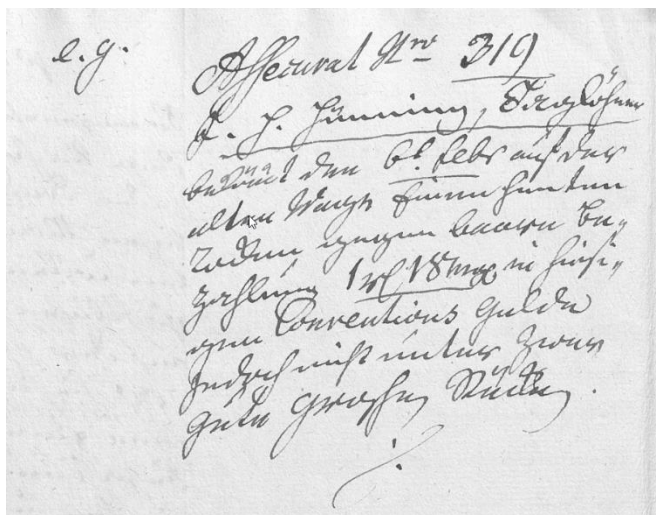 e. g.
Assecurat Nro 319
F. H. Henning, Taglöhner
bekömt den 6t Febr auf der
alten Wage Einen himten
Rocken gegen baare Be-
zahlung 1 rl 18 mg in hiesi-
gen Conventions Gelde
jedoch nicht unter Zwey
gute Groschen Stücken